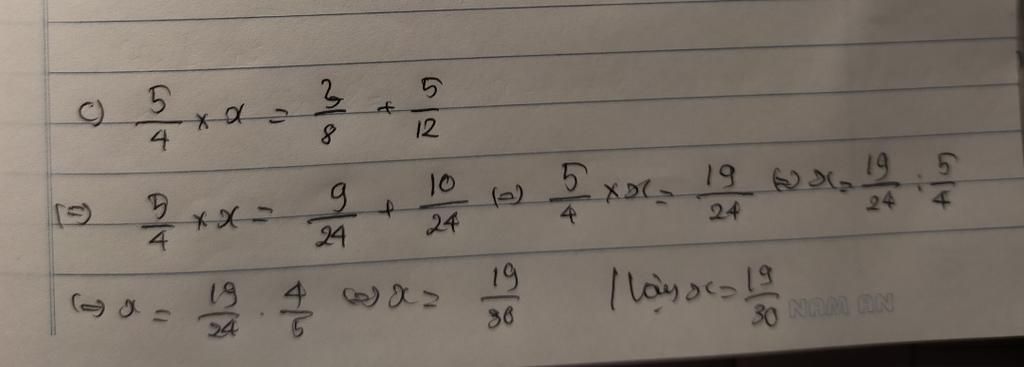 c) 5/4 × x = 3/8 + 5/12
(=) 5/4 × x = 9/24 + 10/24 (=) 5/4 × x = 19/24 (=) x = 19/24 : 5/4
(=) x = 19/24 . 4/5 (=) x = 19/30 Vậy x = 19/30
NAM AN